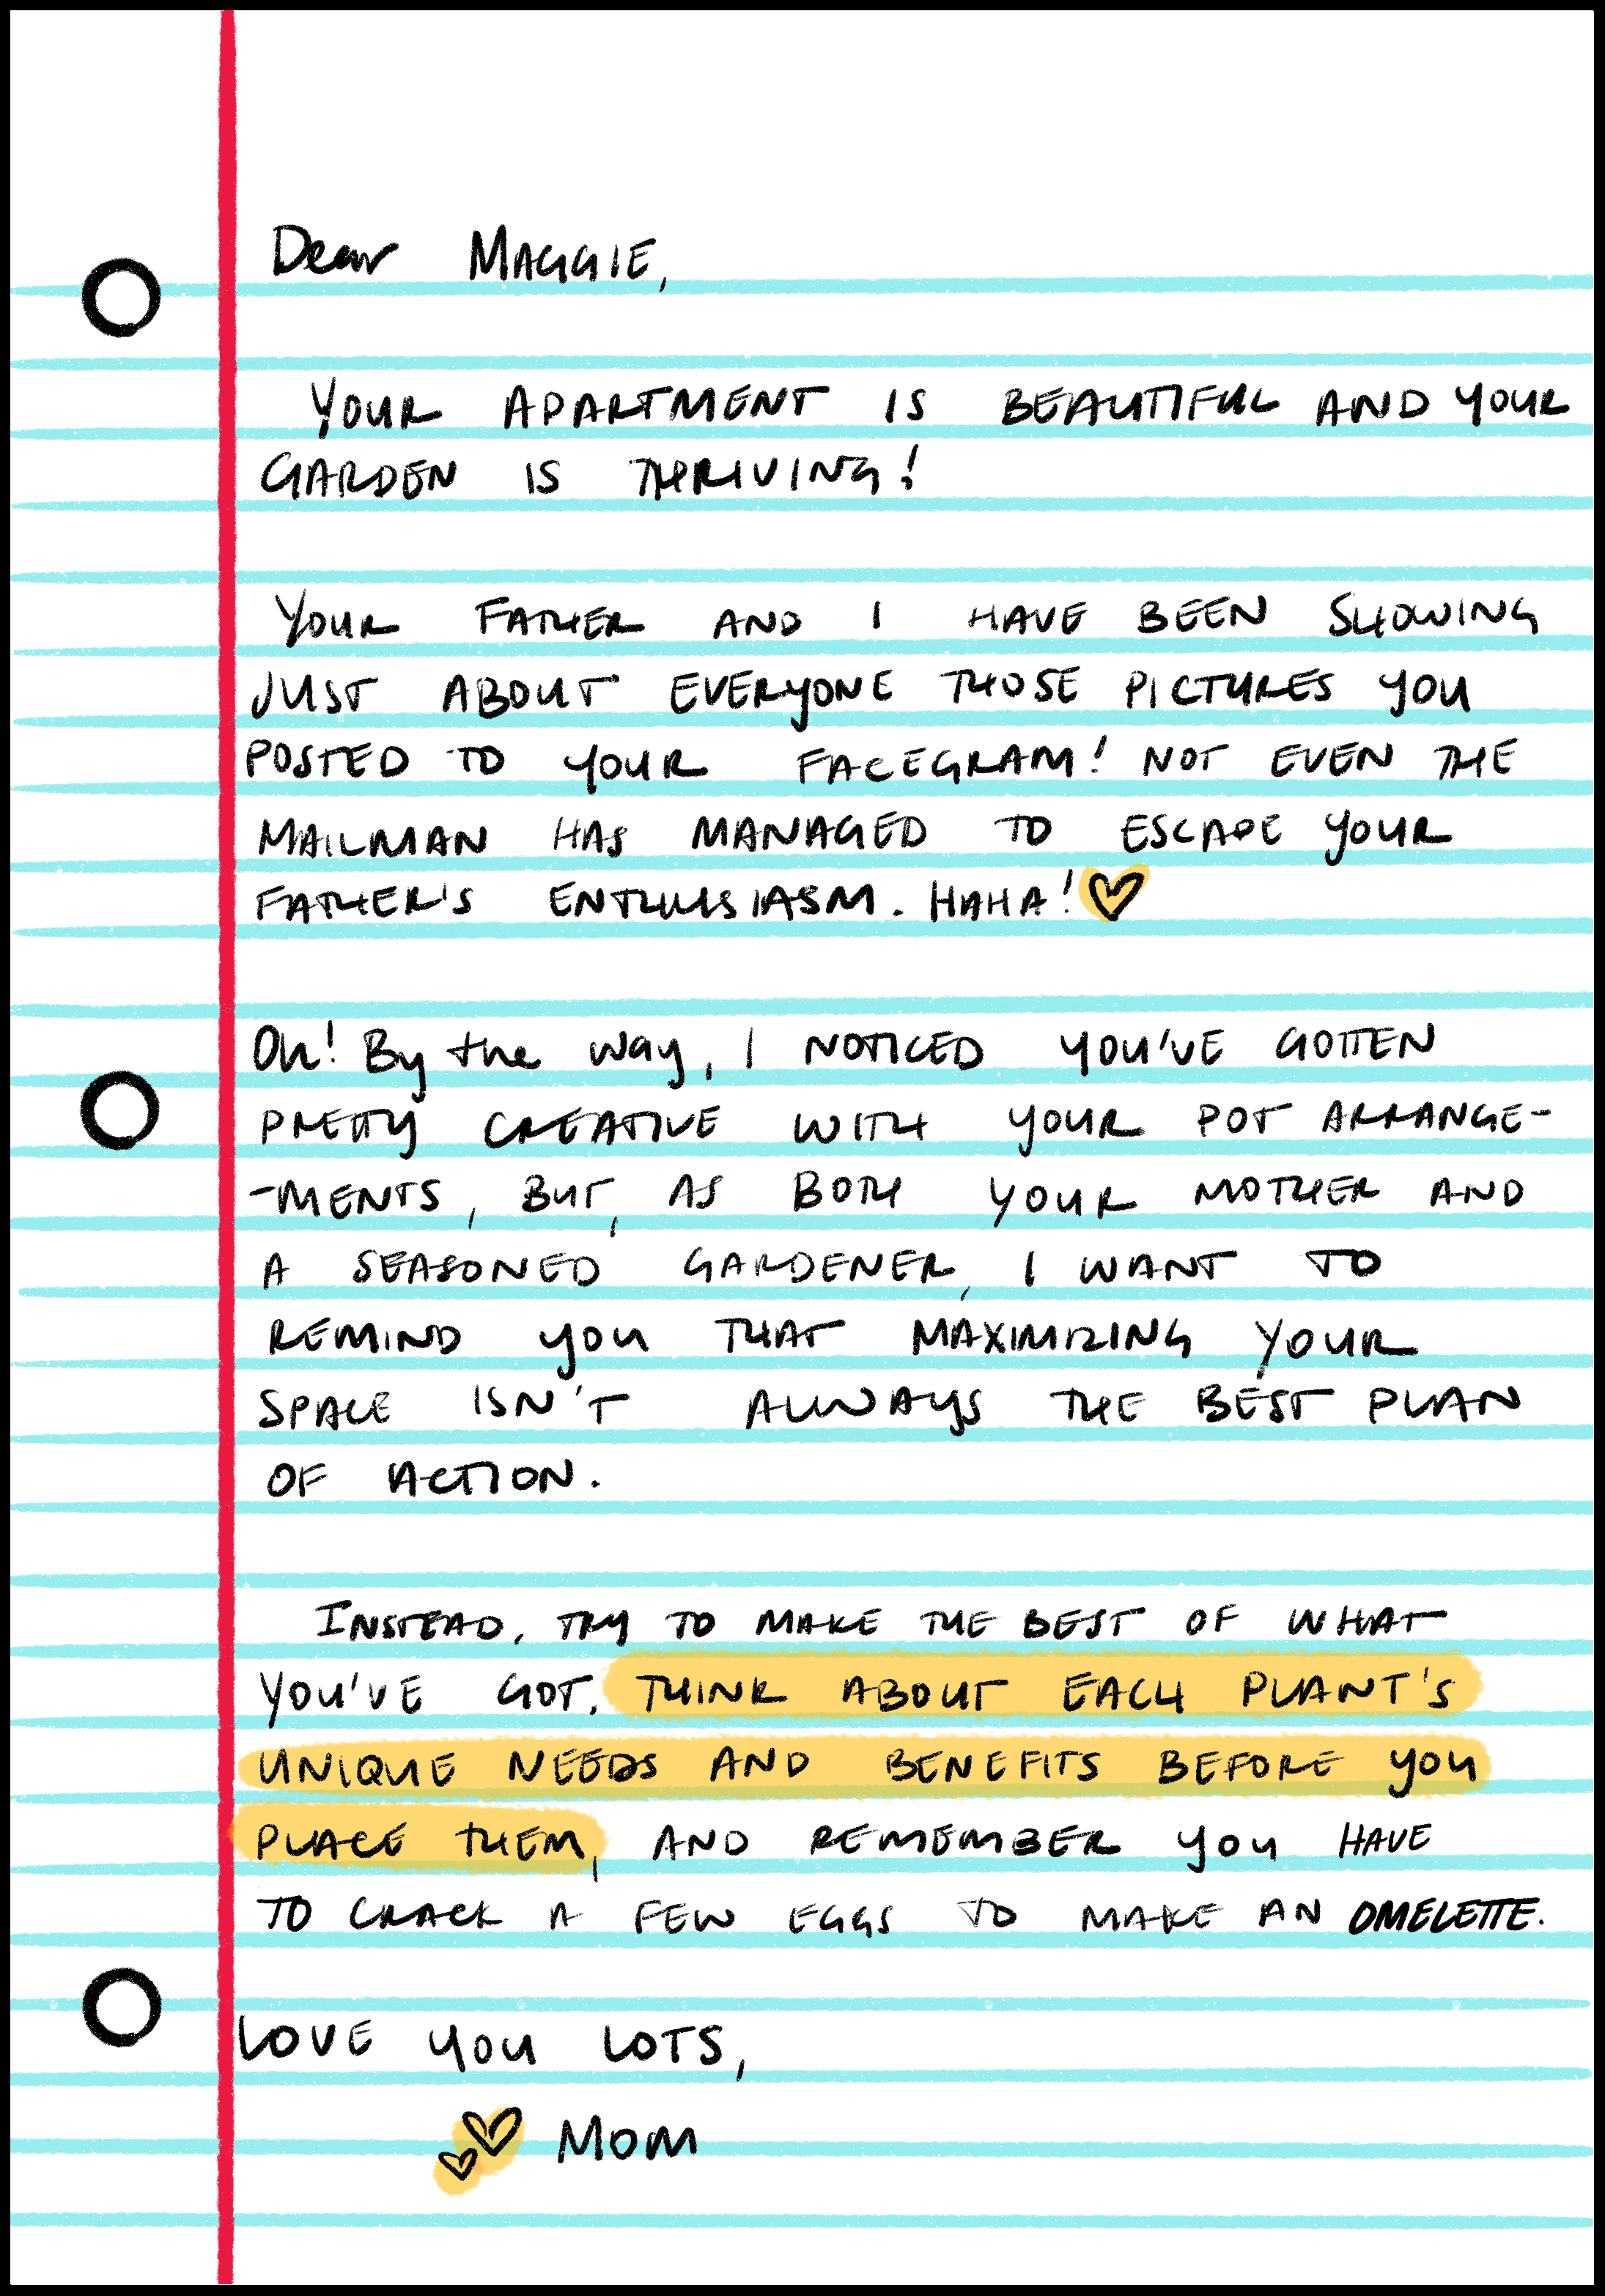 Dear MAGGIE,
YOUR APARTMENT IS BEAUTIFUL AND YOUR
GARDEN IS THRIVING!
YOUR FATHER AND I HAVE BEEN SHOWING
JUST ABOUT EVERYONE THOSE PICTURES YOU
POSTED TO YOUR FACEGRAM! NOT EVEN THE
MAILMAN HAS MANAGED TO ESCAPE YOUR
FATHER'S ENTHUSIASM. HAHA!
Oh! By the way, I NOTICED YOU'VE GOTTEN
PRETTY CREATIVE WITH YOUR POT ARRANGE-
-MENTS, BUT, AS BOTH YOUR MOTHER AND
A SEASONED GARDENER, I WANT TO
REMIND YOU THAT MAXIMIZING YOUR
SPACE ISN'T ALWAYS THE BEST PLAN
OF ACTION.
INSTEAD, TRY TO MAKE THE BEST OF WHAT
YOU'VE GOT. THINK ABOUT EACH PLANT'S
UNIQUE NEEDS AND BENEFITS BEFORE YOU
PLACE THEM, AND REMEMBER YOU HAVE
TO CRACK A FEW EGGS TO MAKE AN OMELETTE.
LOVE YOU LOTS,
MOM